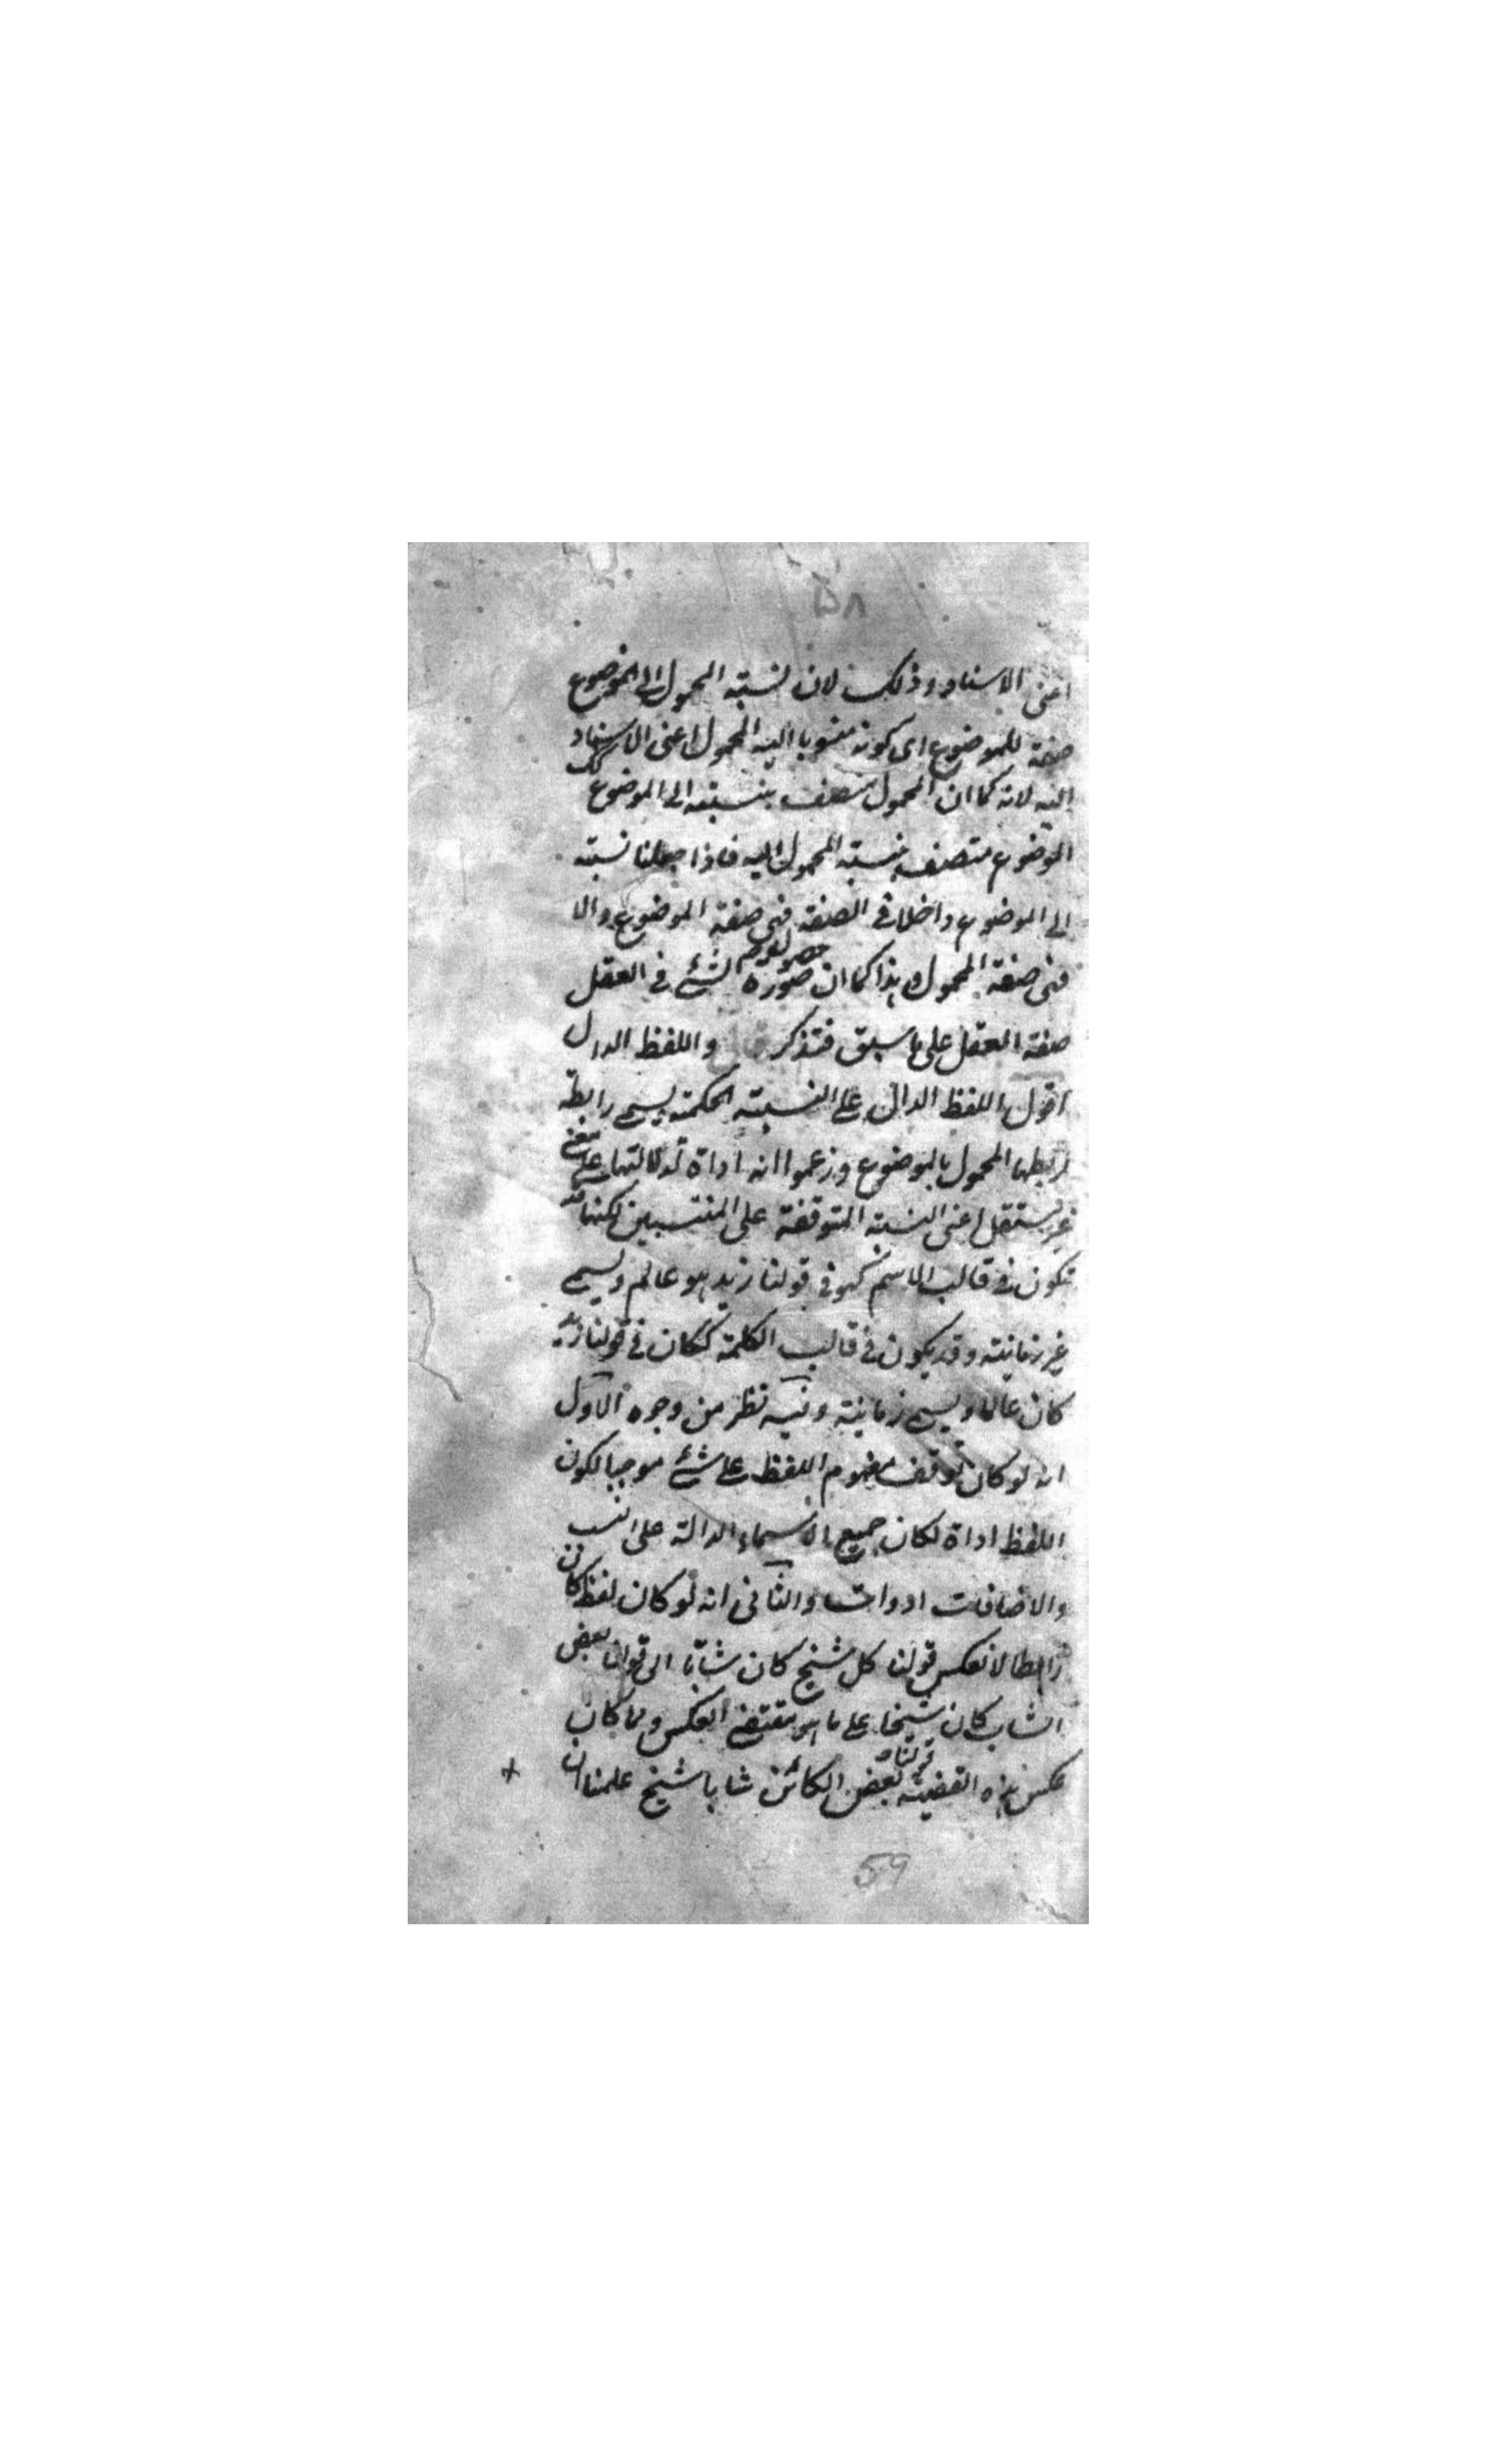 ٥٨
اعنى الاسناد وذلك لان نسبته المحمول الى الموضوع
صفة للموضوع اى كونه منسوبا اليه المحمول اعنى الاسناد
اليه لانه كما ان المحمول متصف بنسبته الى الموضوع كك
الموضوع متصف بنسبته المحمول اليه فاذا جعلنا نسبته
الى الموضوع داخلا فى الصفة فهى صفة الموضوع والا
فهى صفة المحمول وهذا كما ان صورة الشئ فى العقل
صفة العقل على ما سبق فتذكر قال واللفظ الدال
اقول اللفظ الدال على النسبته الحكمته يسمى رابطة
لربطها المحمول بالموضوع وزعموا انه اداة لدلالتها على معنى
غير مستقل اعنى النسبته المتوقفة على المنتسبين لكنها قد
تكون فى قالب الاسم كهو فى قولنا زيد هو عالم ويسمى
غير زمانيته وقد يكون فى قالب الكلمة ككان فى قولنا زيد
كان عالما ويسمى زمانيته وفيه نظر من وجوه الاول
انه لو كان توقف مفهوم اللفظ على شئ موجبا لكون
اللفظ اداة لكان جميع الاسماء الدالة على النسب
والاضافات ادوات والثانى انه لو كان لفظ كان
رابطا لانعكس قولنا كل شيخ كان شابّا الى قولنا بعض
الشاب كان شيخا على ما هو مقتضى العكس ولما كان
عكس هذه القضيته قولنا بعض الكائن شابا شيخ علمنا ان
59